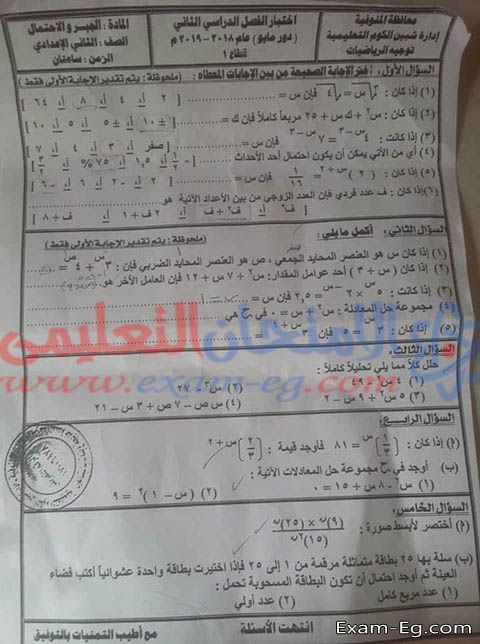 محافظة المنوفية
إدارة شبين الكوم التعليمية
توجيه الرياضيات
اختبار الفصل الدراسي الثاني
(دور مايو) عام ٢٠١٨ - ٢٠١٩ م
قطاع ١
المادة: الجبر و الاحتمال
الصف: الثاني الإعدادي
الزمن: ساعتان
السؤال الأول: أختر الإجابة الصحيحة من بين الإجابات المعطاه: (ملحوظة: يتم تقدير الإجابة الأولى فقط)
(١) إذا كان: س = ٤ فإن س = [ ٢ أ، ٤ أ، ٨ أ، ٦٤ ]
(٢) إذا كان: س٢ + ك س + ٢٥ مربعاً كاملاً فإن ك = [ ± ١٠ أ، ± ٥ أ، ٥ أ، ١٠ ]
(٣) إذا كانت: ٤ س - ٣ = ٧ س - ٣ فإن س = [ صفر أ، ٣ أ، ٤ أ، ٧ ]
(٤) أي من الآتي يمكن أن يكون احتمال أحد الأحداث [ - ١/٢ أ، ١,٥ أ، ٧٥% أ، ٣/٢ ]
(٥) إذا كان: (٢) س + ٢ = ١/١٦ فإن س = [ ٢ أ، - ٢ أ، ٦ أ، - ٦ ]
(٦) إذا كان: ف عدد فردي فإن العدد الزوجي من بين الأعداد الآتية هو
[ ف٢ أ، ف٢ + ف أ، ٢ف + ١ أ، ف + ٨ ]
السؤال الثاني: أكمل ما يلي: (ملحوظة: يتم تقدير الإجابة الأولى فقط)
(١) إذا كان س هو العنصر المحايد الجمعي، ص هو العنصر المحايد الضربي فإن: ٣ س + ٤ ص =
(٢) إذا كان (س + ٣) أحد عوامل المقدار: س٢ + ٧ س + ١٢ فإن العامل الآخر هو
(٣) إذا كانت: ٥ س × ٢ - س = ٢,٥ فإن س =
(٤) مجموعة حل المعادلة: س٢ + ٢ = ٠ في ح هي
(٥) إذا كان: ٣ س = ٥ فإن ٣ س + ١ =
السؤال الثالث:
حلل كلاً مما يلي تحليلاً كاملاً:
(١) س٢ - ٤٩
(٢) س٣ - ٢٧
(٣) ٥ س٢ + ٩ س - ٢
(٤) س ص - ٧ ص + ٣ س - ٢١
السؤال الرابع:
(أ) إذا كان: (١/٣) س = ٨١ فأوجد قيمة: (٢/٣) س + ٢
(ب) أوجد في ح مجموعة حل المعادلات الآتية:
(١) س٢ - ٨ س + ١٥ = ٠
(٢) (س - ١)٢ = ٩
السؤال الخامس:
(أ) اختصر لأبسط صورة: (٩)ن × (٢٥)ن / (١٥)٢ن
(ب) سلة بها ٢٥ بطاقة متماثلة مرقمة من ١ إلى ٢٥ فإذا اختيرت بطاقة واحدة عشوائياً أكتب فضاء
العينة ثم أوجد احتمال أن تكون البطاقة المسحوبة تحمل:
(١) عدد مربع كامل
(٢) عدد أولي
انتهت الأسئلة
مع أطيب التمنيات بالتوفيق
الامتحان التعليمى
www.exam-eg.com
Exam-Eg.com